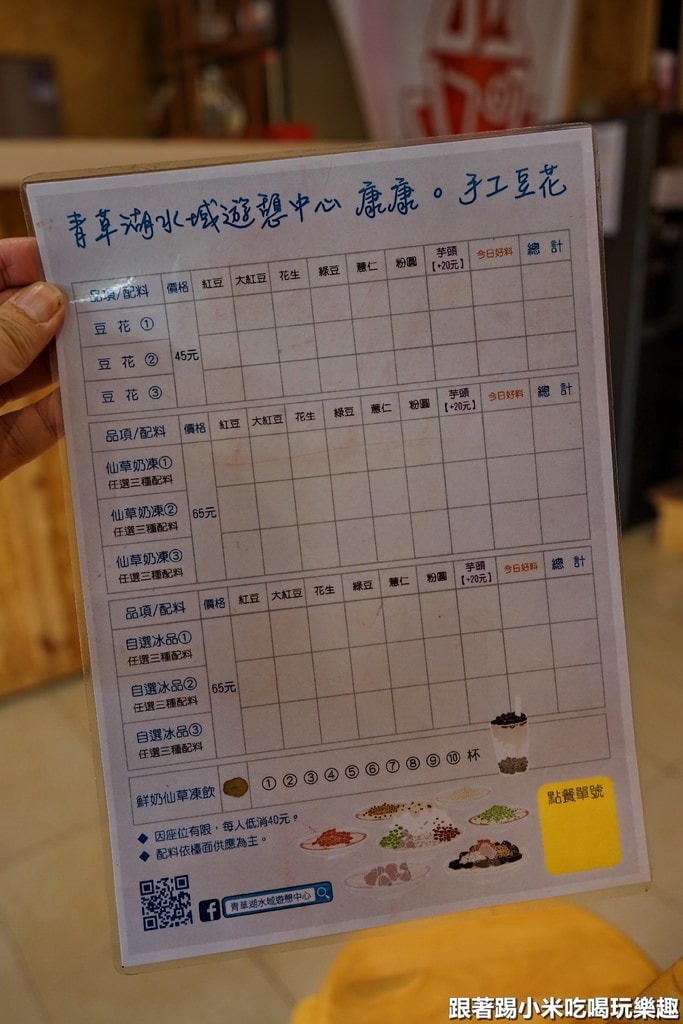 青草湖水域遊憩中心 康康。手工豆花
品項/配料 價格 紅豆 大紅豆 花生 綠豆 薏仁 粉圓 芋頭【+20元】 今日好料 總計
豆花①
豆花② 45元
豆花③
品項/配料 價格 紅豆 大紅豆 花生 綠豆 薏仁 粉圓 芋頭【+20元】 今日好料 總計
仙草奶凍①
任選三種配料
仙草奶凍② 65元
任選三種配料
仙草奶凍③
任選三種配料
品項/配料 價格 紅豆 大紅豆 花生 綠豆 薏仁 粉圓 芋頭【+20元】 今日好料 總計
自選冰品①
任選三種配料
自選冰品② 65元
任選三種配料
自選冰品③
任選三種配料
鮮奶仙草凍飲 ①②③④⑤⑥⑦⑧⑨⑩杯
◆ 因座位有限，每人低消40元。
◆ 配料依檯面供應為主。
點餐單號
f 青草湖水域遊憩中心
跟著踢小米吃喝玩樂趣